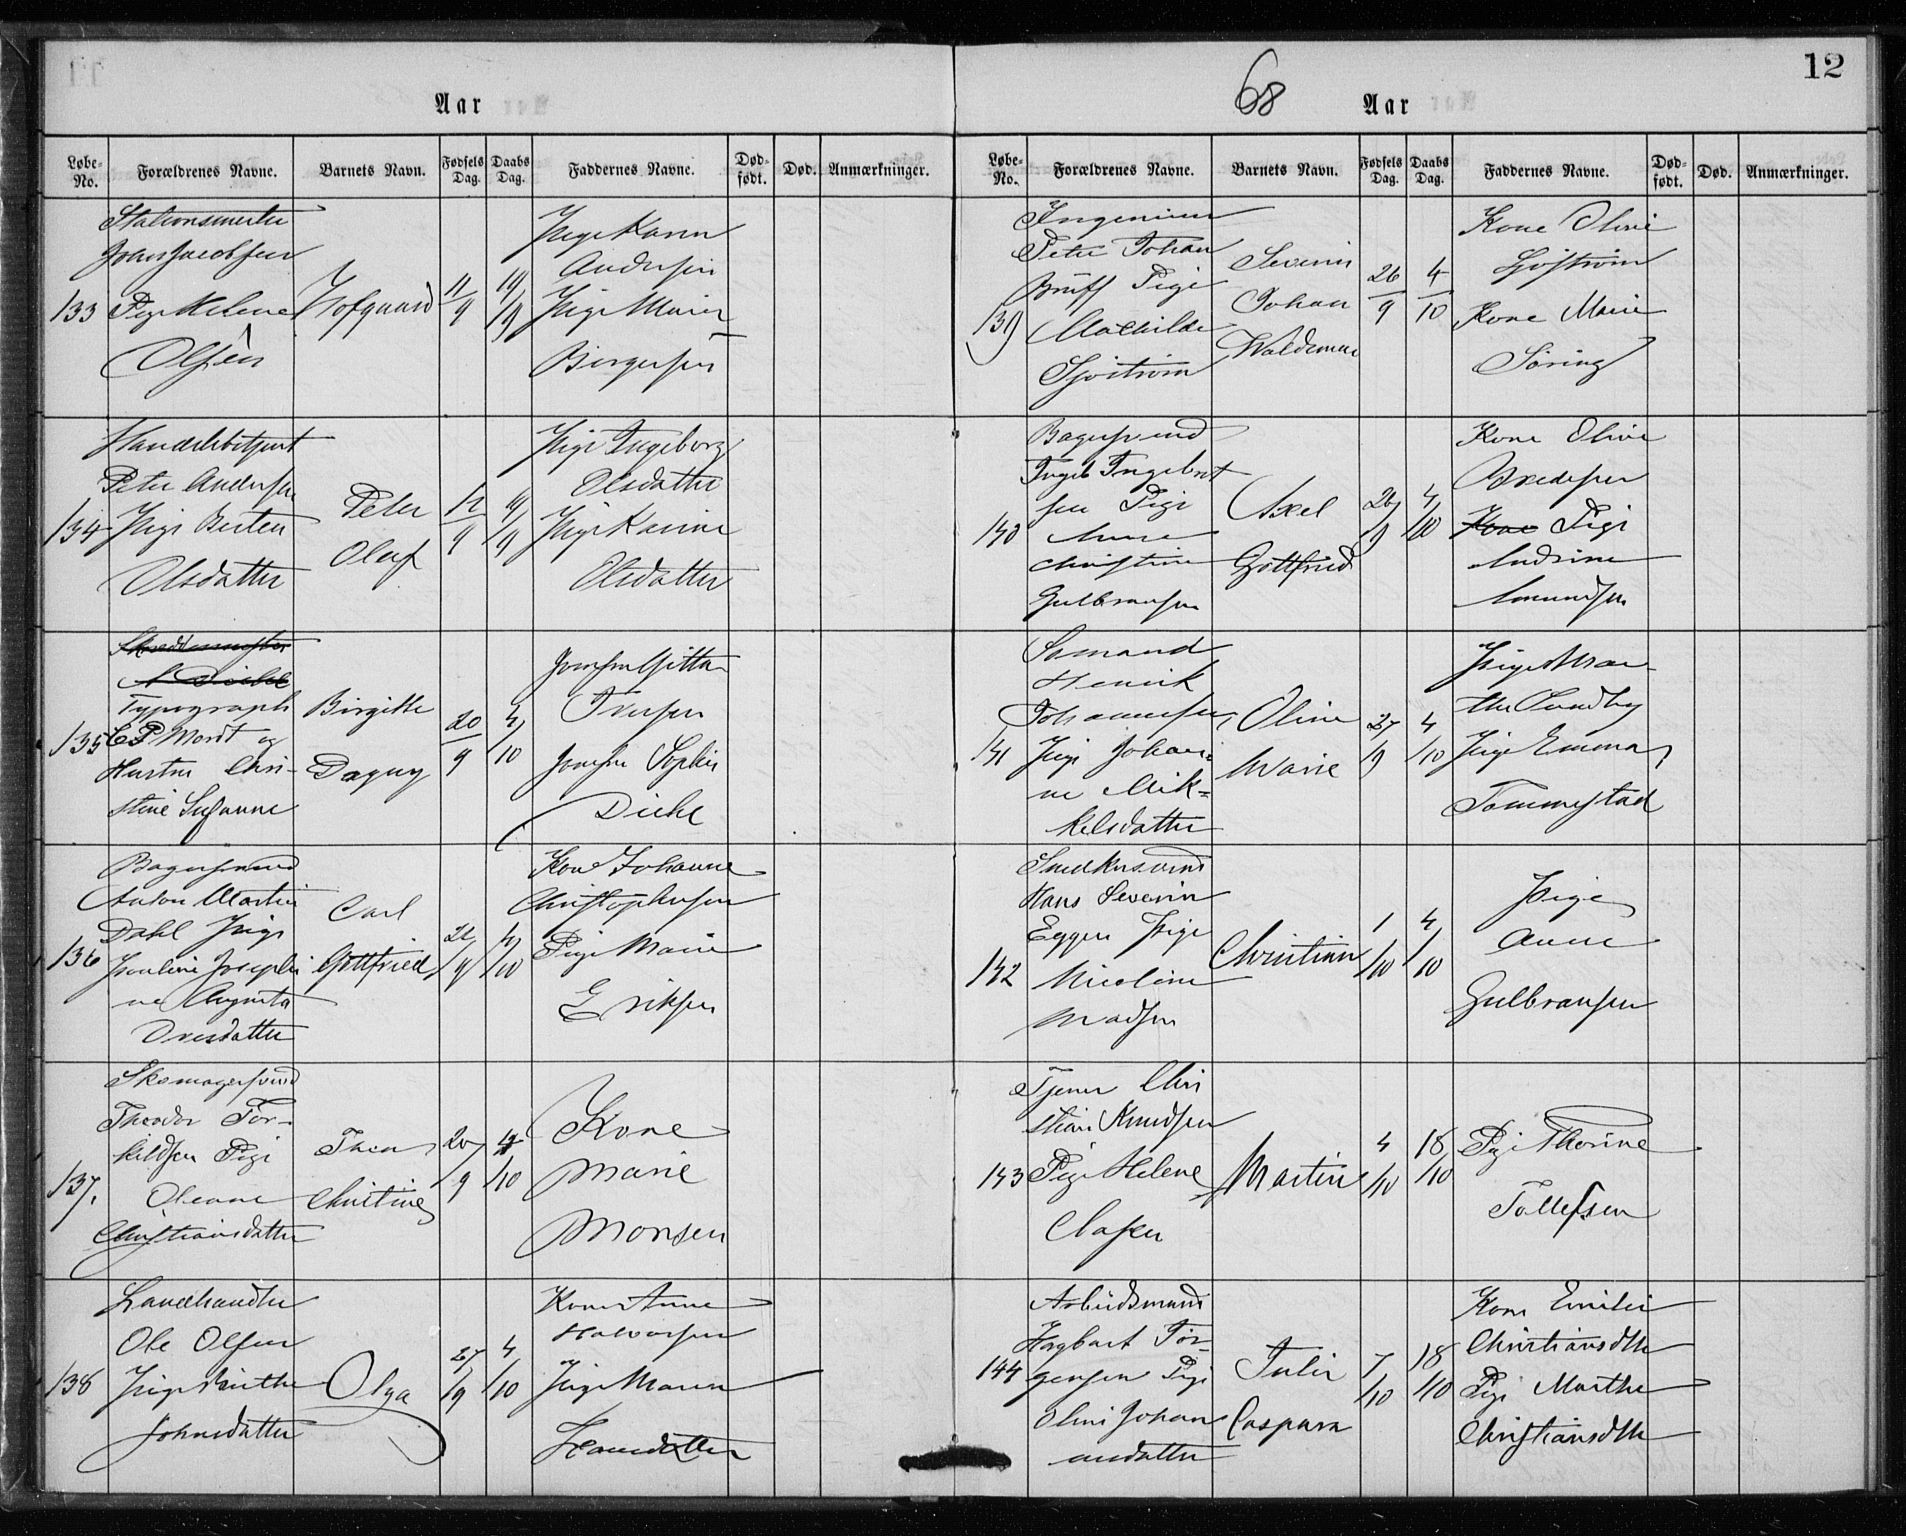 12
Aar
68 Aar
Løbe-No. Forældrenes Navne. Barnets Navn. Fødsels Dag. Daabs Dag. Faddernes Navne. Død-født. Død. Anmærkninger.
133
Helene
Olsen
Hofgaard
11/9
19/9
Pige Karen
Andersen
Pige Maren
Birgersen
134
Peter Andersen
Pige
Olsdatter
Peter
Olaf
12/9
Pige Ingeborg
Olsdatter
Pige Karine
Olsdatter
135
Typograph
Mordt og
Hustru Chri-
stine Susanne
Birgitte
Dagny
20/9
4/10
Jomfru Gitta
Iversen
Jomfru Sophie
Diehl
136
Bagersvend
Anton Martin
Dahl Pige
Pauline Josephi
ne Augusta
Carl
Gottfried
4/10
Kone Johanne
Christophersen
Pige Marie
Eriksen
137.
Skomagersvend
Theodor Tor-
kildsen Pige
Oleane
Christiansdatter
Thea
Christine
4/10
Kone
Marie
Monsen
138
Landhandler
Ole Olsen
Pige
Johnsdatter
Olga
27/9
4/10
Kone Anne
Halvorsen
Pige Maren
Løbe-No. Forældrenes Navne. Barnets Navn. Fødsels Dag. Daabs Dag. Faddernes Navne. Død-født. Død. Anmærkninger.
139
Ingenieur
Peter Johan
Pige
Mathilde
Sjöström
Severin
Johan
Waldemar
26/9
4/10
Kone Olivie
Sjöström
Kone Marie
Søring
140
Bagersvend
Ingebret
sen Pige
Anne
Christine
Gulbransen
Axel
Gottfried
26/9
4/10
Kone Olive
Bredesen
Kone Pige
Andrine
Amundsen
141
Sømand
Henrik
Johannesen,
Pige Johan-
ne Mik=
kelsdatter
Oline
Marie
27/9
4/10
Pige Mar-
the Sundby
Pige Emma
Tommestad
142
Smedkusvend
Hans Severin
Eggen Pige
Nicoline
Madsen
Christian
1/10
4/10
Pige
Anne
Gulbransen
143
Tjener Chri
stian Knudsen
Pige Helene
Martin
4/10
18/10
Pige Thorine
Tollefsen
144
Arbeidsmand
Hagbart Jør-
gensen Pige
Oline Johan
nesdatter
Julie
Caspara
7/10
18/10
Kone Emilie
Christiansdtr
Pige Marthe
Christiansdtr